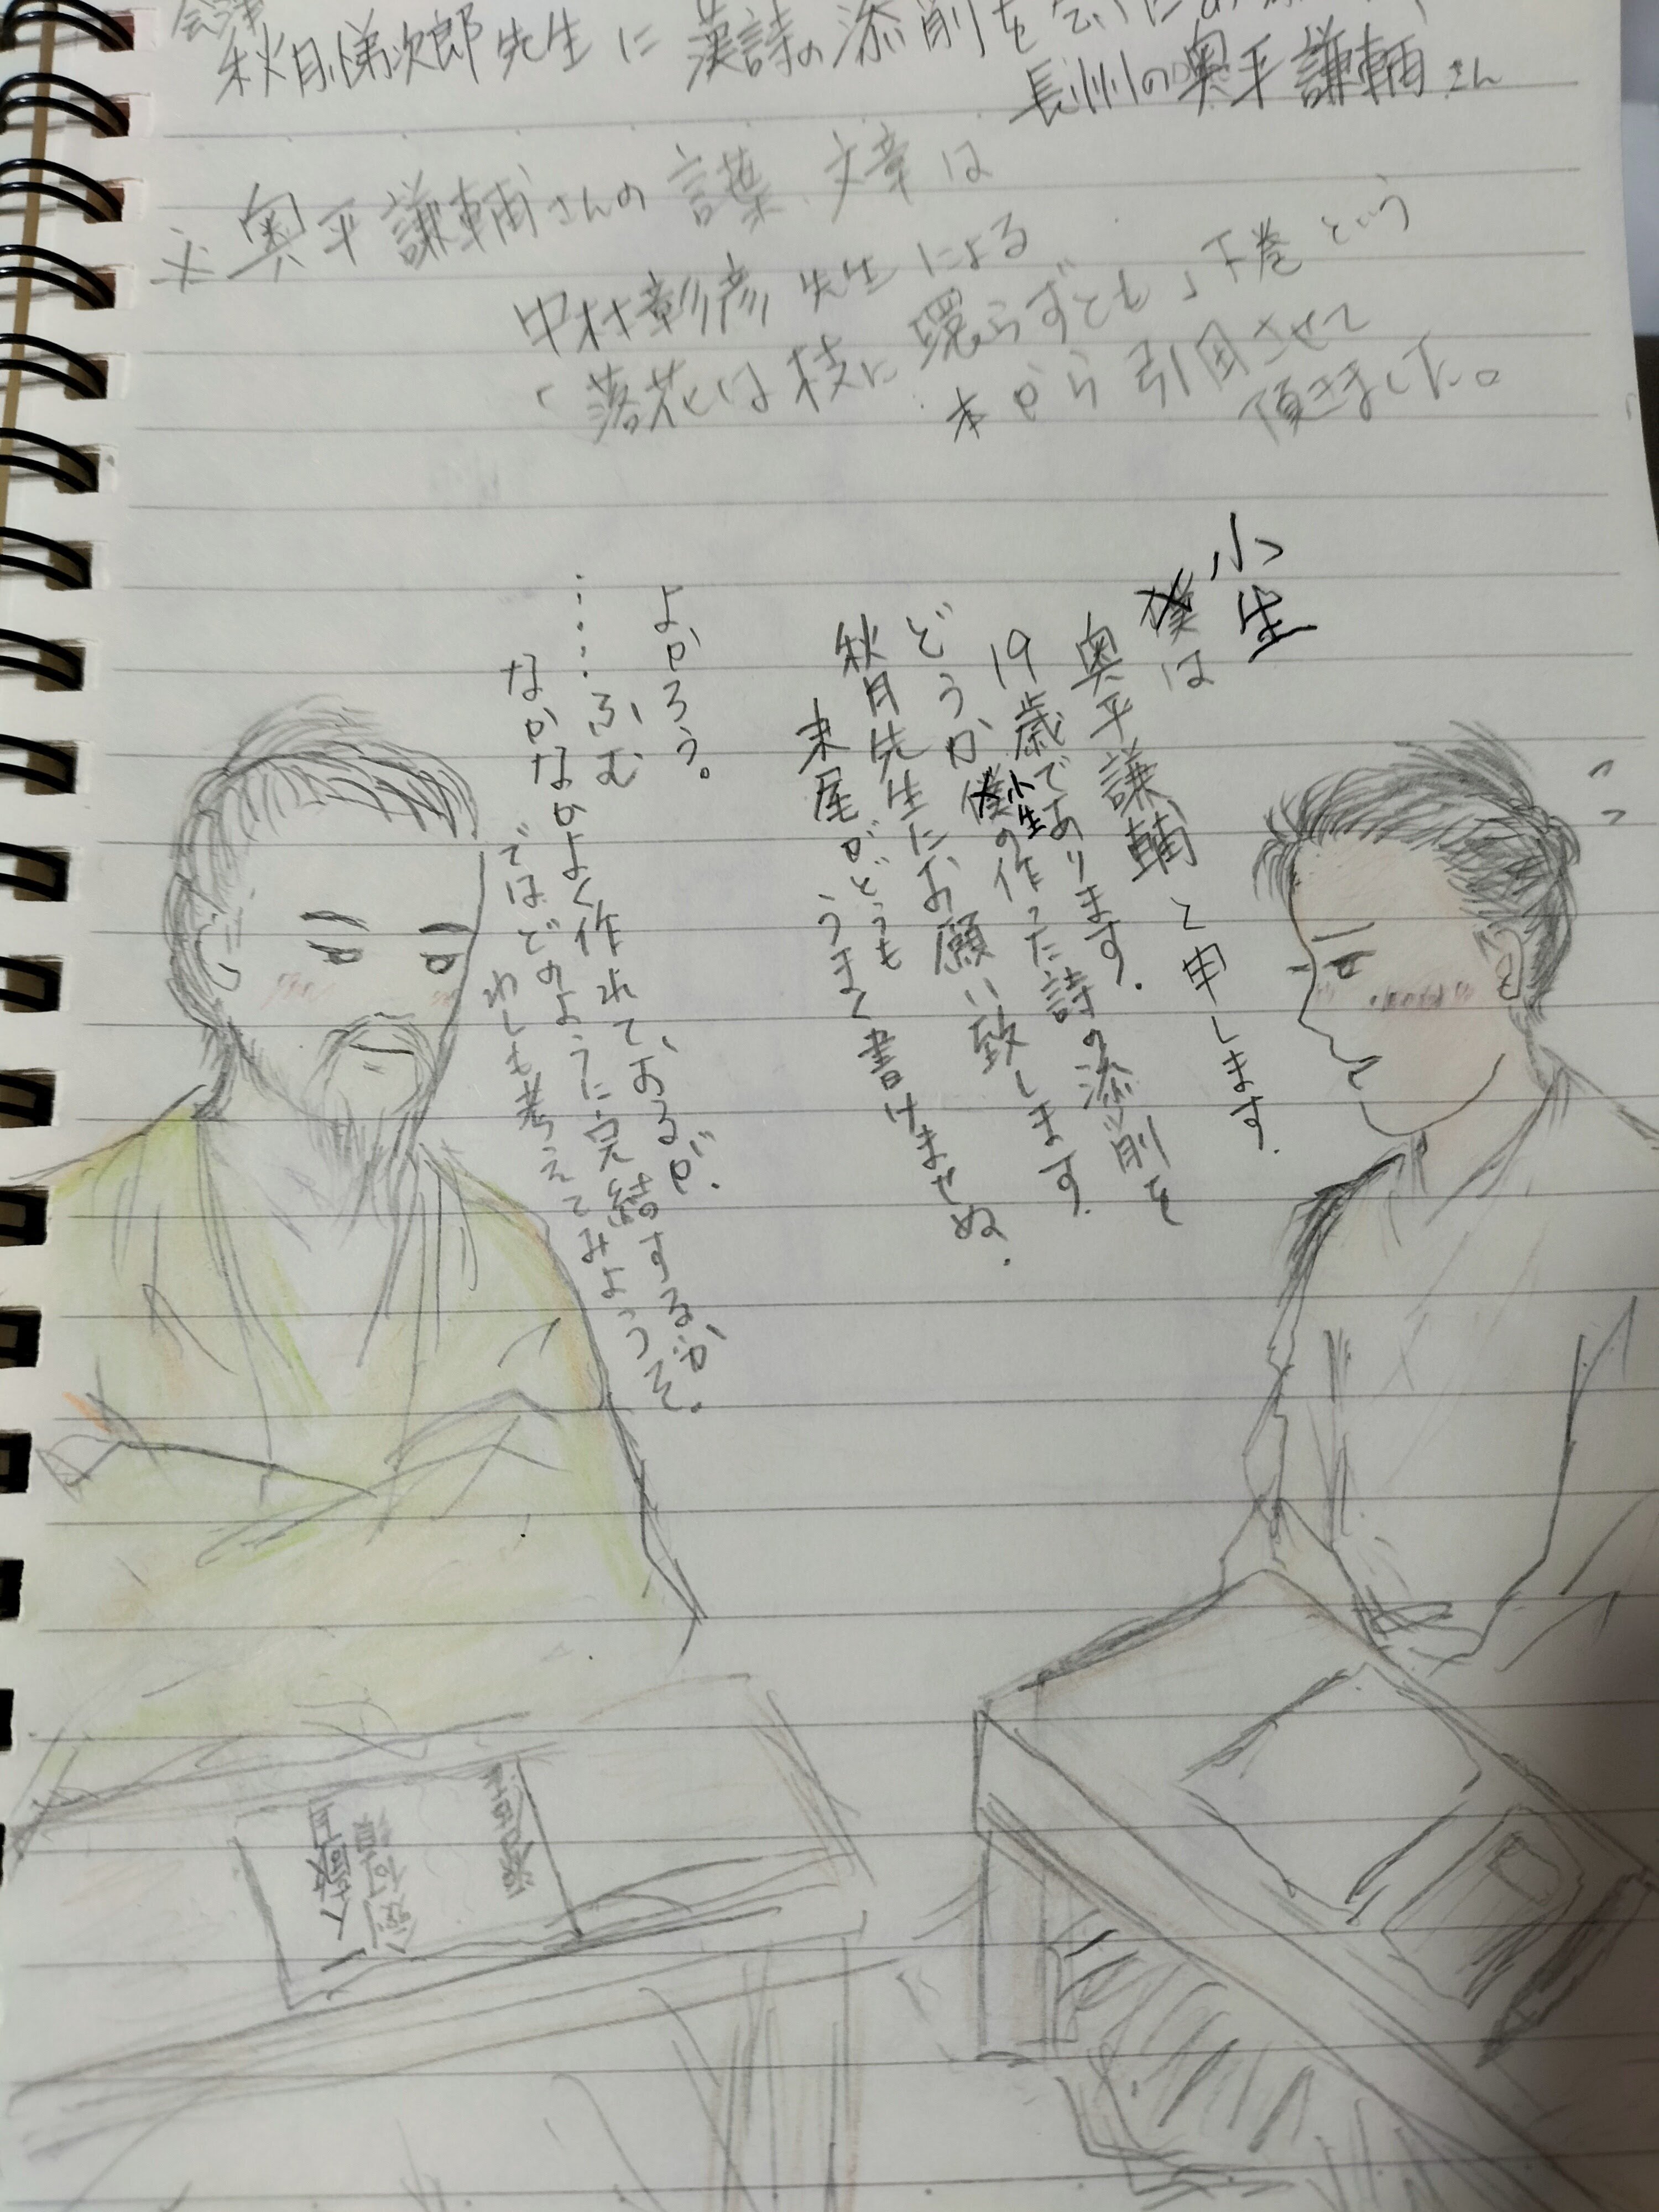 会津
秋月悌次郎先生に漢詩の添削を
長州の奥平謙輔さん
※奥平謙輔さんの言葉、文章は
中村彰彦先生による
「落花は枝に還らずとも」下巻という
本から引用させて
頂きました。
小生
僕は
奥平謙輔と申します.
19歳であります.
どうか僕小生の作った詩の添削を
秋月先生にお願い致します.
末尾がどうも
うまく書けませぬ.
よかろう。
……ふむ
なかなかよく作れておるが、
ではどのように完結するか、
わしも考えてみようぞ.